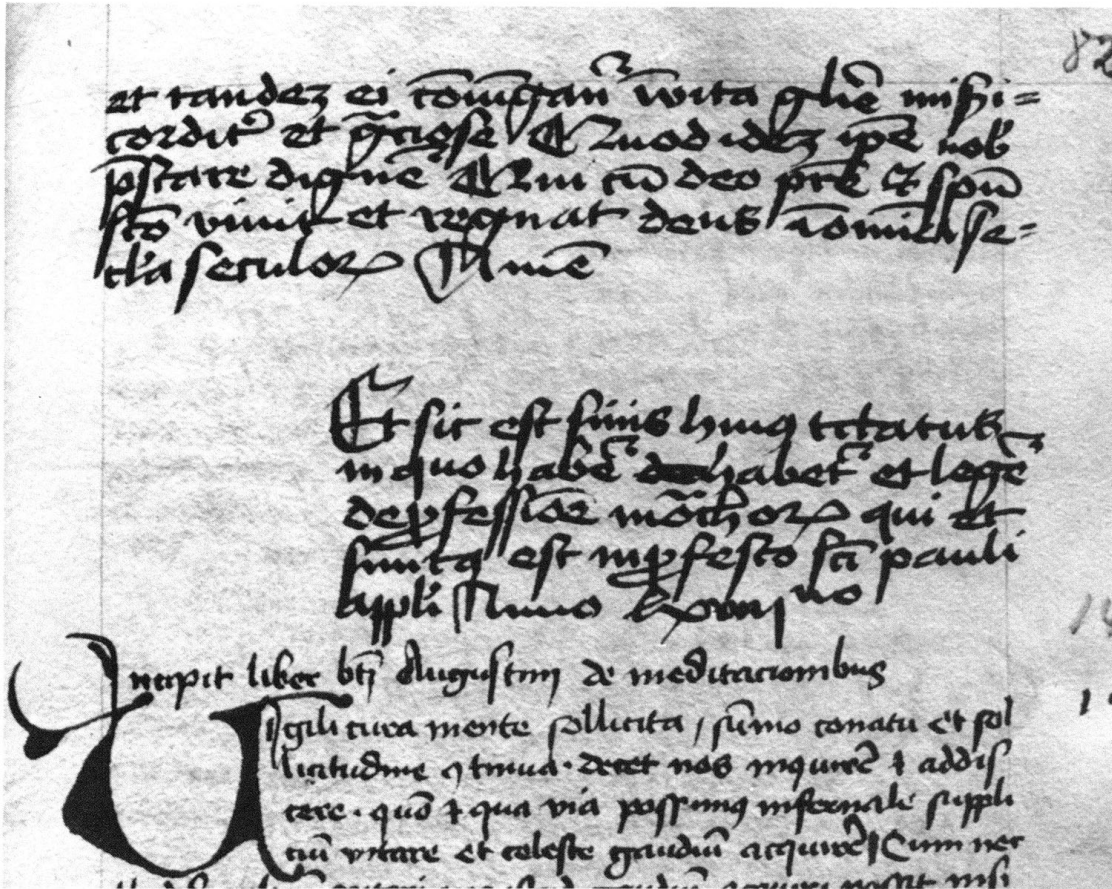 et tandez ei cōmi͞gan᷑ ī vita gl̄ie mis̄i=
cordit᷑ et gͣciose Quod idez ip̄e nob̄
p̄stare dign̄e᷑ Qui cū deo pr̄e Et sp̄u
scō viuit et regnat deus ī om̄ia se=
cl̄a seculoꝝ Amē
Et sic est finis huiꝯ tͣctatus
in quo habe᷑ habet᷑ et lege᷑
de ꝓfessiōe mōachoꝝ qui et
finitꝰ est in ꝓfesto sc̄i pauli
appl̄i Anno
Incipit liber bt̄i Augustinj de meditacionibus
Uigili cura mente sollicita / sūmo conatu et sol
licitudine ꝯtinua · decet nos inquirē ⁊ addis
cere · quō ⁊ qua via possimꝰ infernale suppli
ciū vitare et celeste gaudiū acquirē Cum nec
82